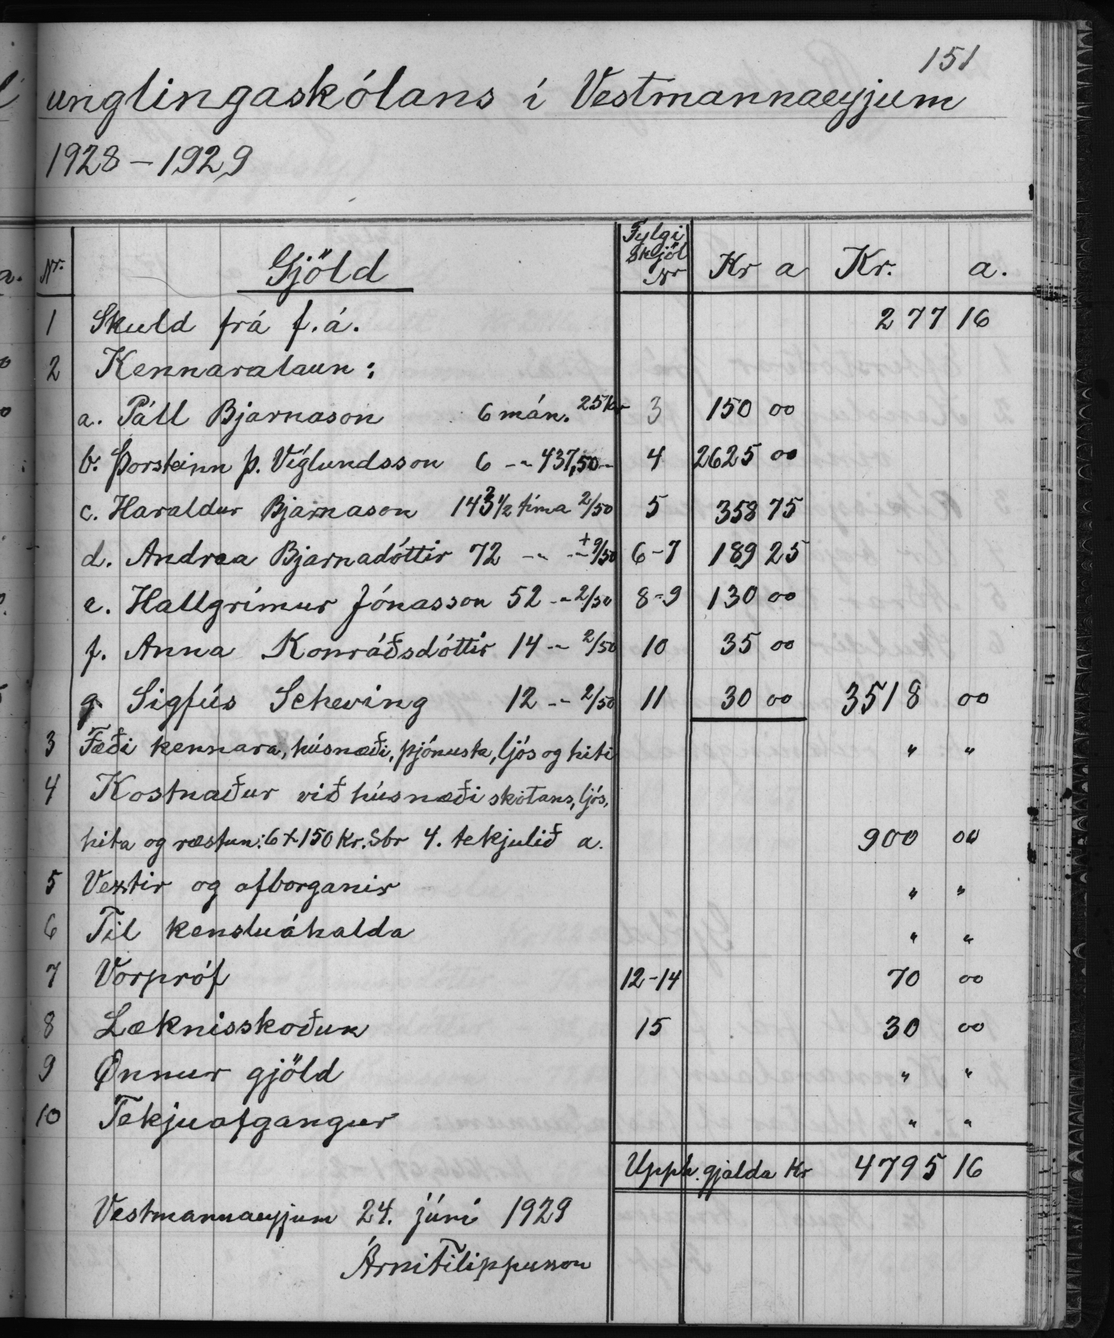 151
unglingaskólans í Vestmannaeyjum
1928 – 1929
Nr. Gjöld Fylgiskjöl Nr Kr a Kr. a.
1 Skuld frá f. á. 277 16
2 Kennaralaun:
a. Páll Bjarnason 6 mán. 25 kr 3 150 00
b. Þorsteinn Þ. Víglundsson 6 -"- 437,50 - 4 2625 00
c. Haraldur Bjarnason 143 1/2 tíma 2/50 5 358 75
d. Andrea Bjarnadóttir 72 -"- 6-7 189 25
e. Hallgrímur Jónasson 52 -"- 2/50 8-9 130 00
f. Anna Konráðsdóttir 14 -"- 2/50 10 35 00
g Sigfús Scheving 12 -"- 2/50 11 30 00 3518 00
3 Fæði kennara, húsnæði, þjónusta, ljós og hiti " "
4 Kostnaður við húsnæði skólans, ljós,
hita og ræstun: 6 x 150 kr. Sbr 4. tekjulið a. 900 00
5 Vextir og afborganir " "
6 Til kensluáhalda " "
7 Vorpróf 12-14 70 00
8 Læknisskoðun 15 30 00
9 Önnur gjöld " "
10 Tekjuafgangur " "
Upph. gjalda kr 4795 16
Vestmannaeyjum 24. júní 1929
Árni Filippusson